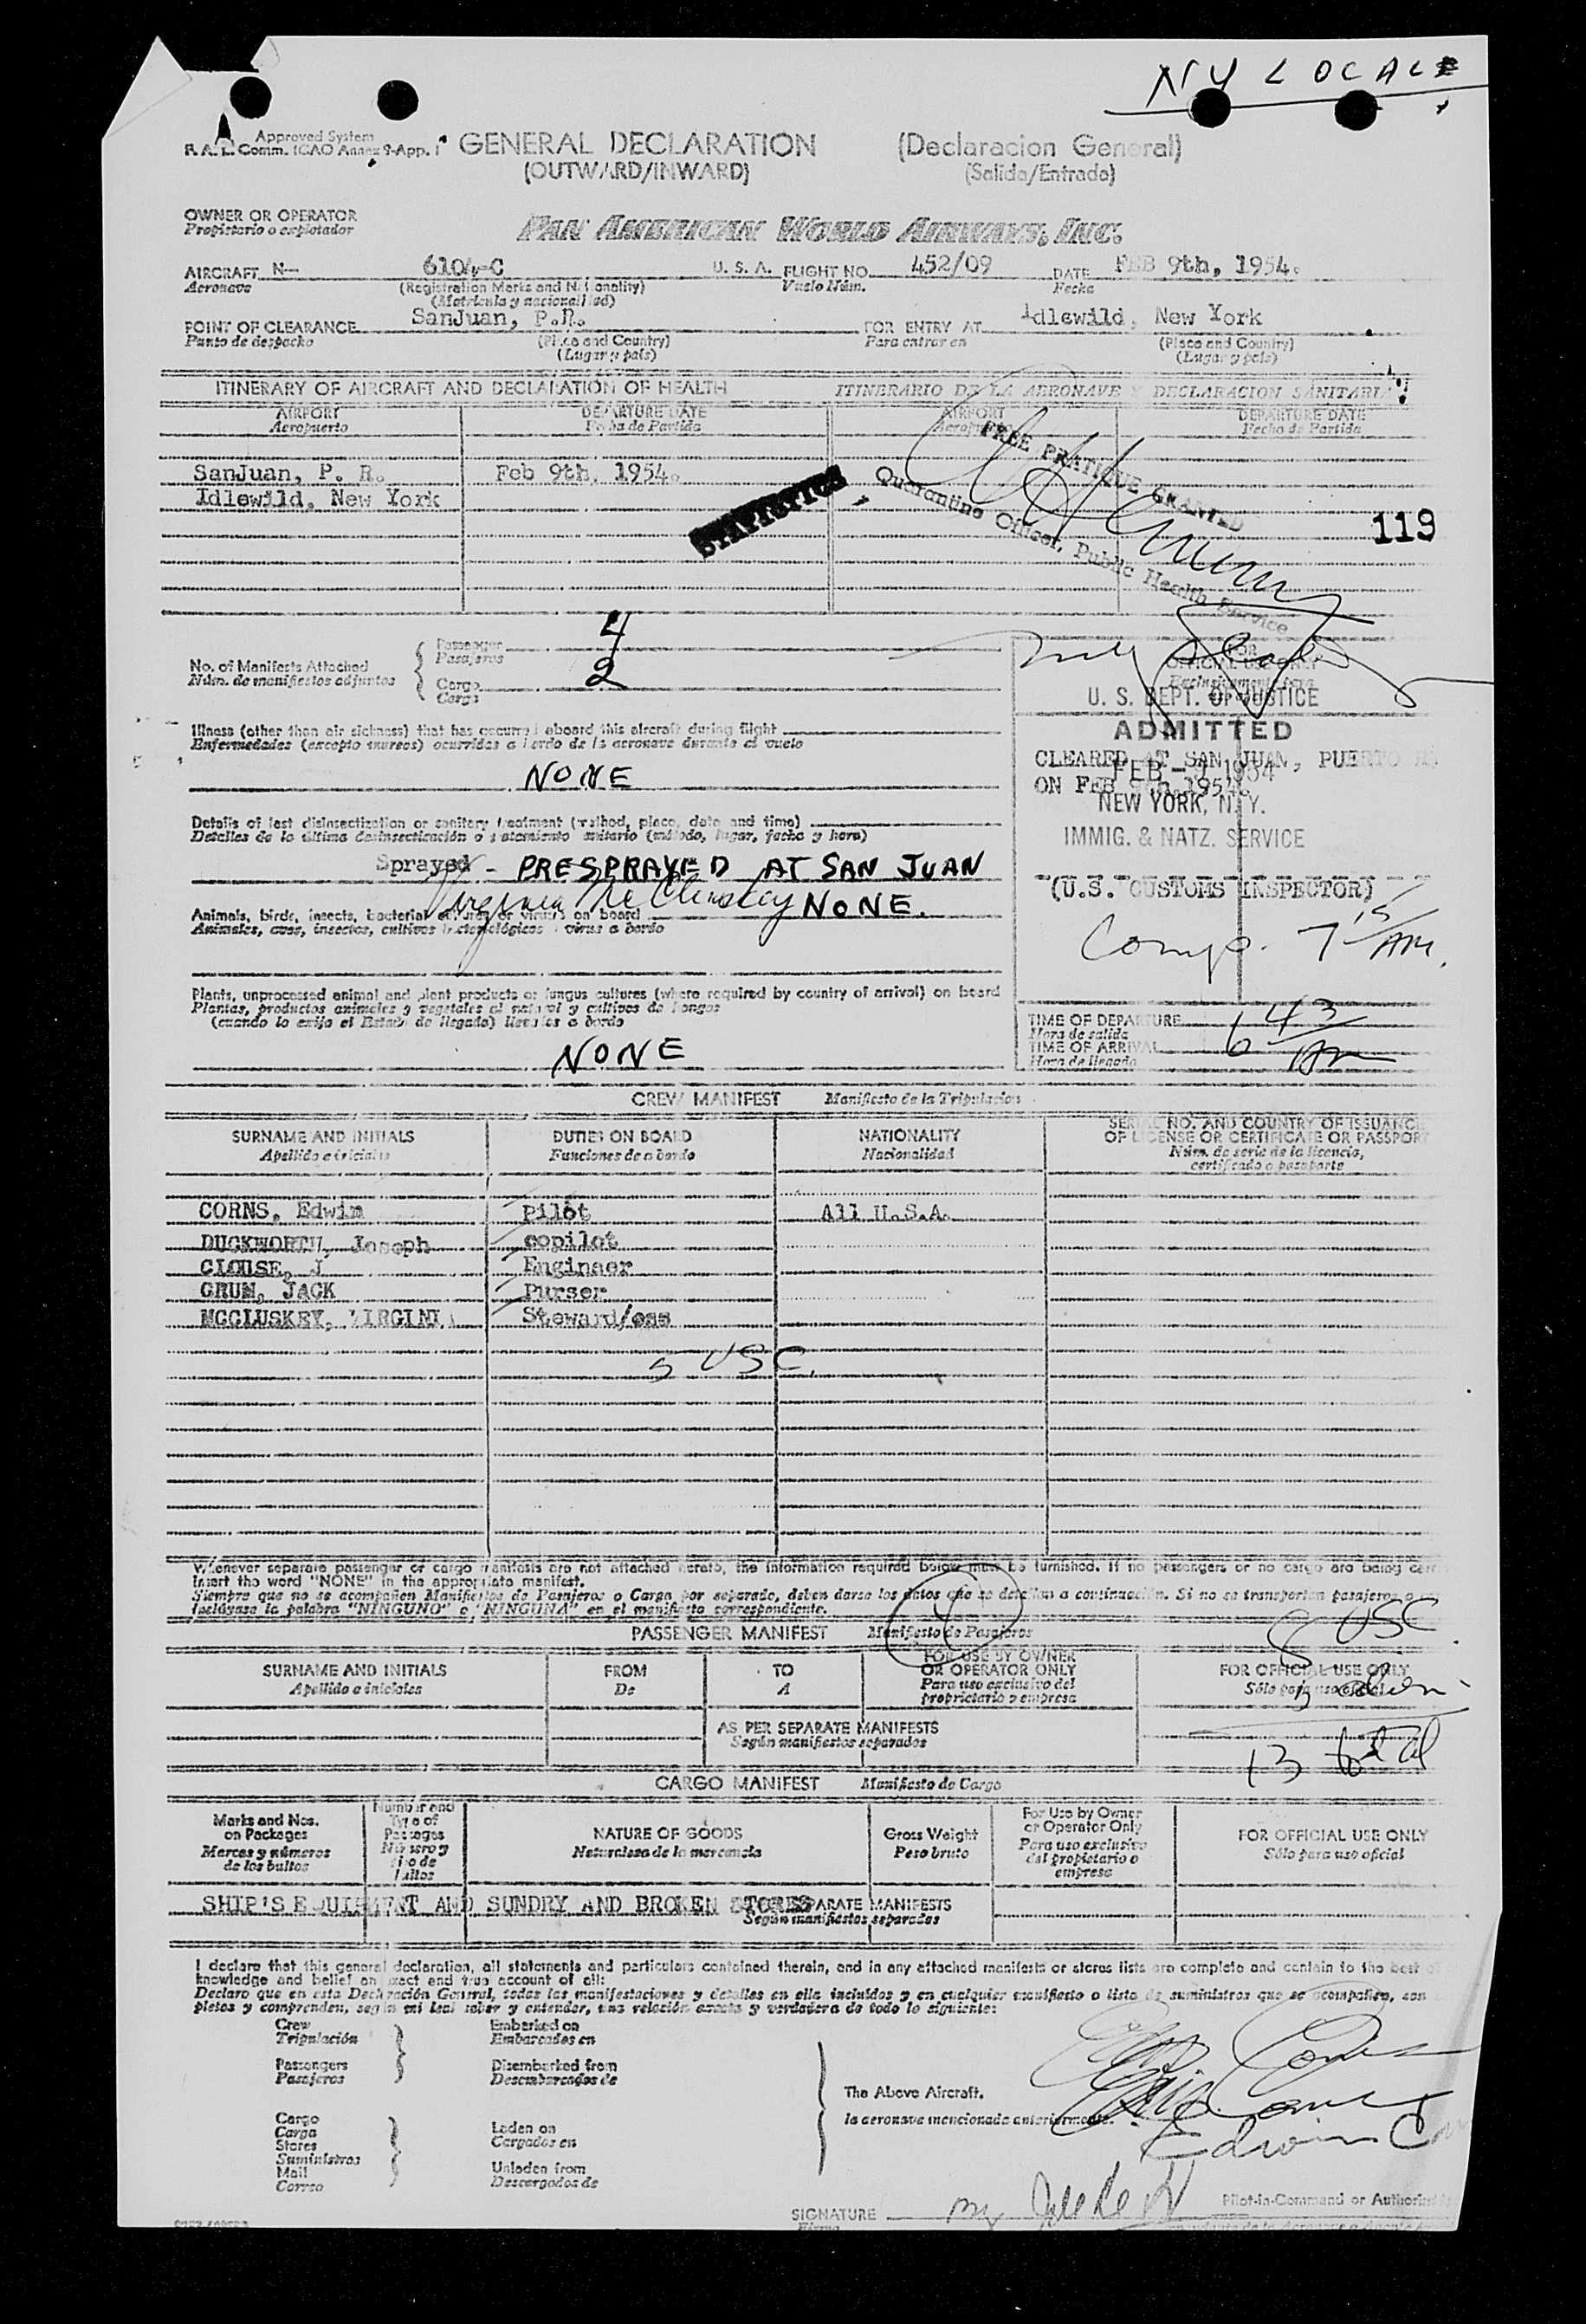 NY LOCALE
Approved System
Comm. ICAO Annex 9-App. 1
GENERAL DECLARATION (Declaracion General)
(OUTWARD/INWARD) (Salida/Entrada)
OWNER OR OPERATOR
Propietario o explotador
PAN AMERICAN WORLD AIRWAYS, INC.
AIRCRAFT N- 6104-C U. S. A. FLIGHT NO. 452/09 DATE FEB 9th, 1954.
Aeronave (Registration Marks and Nationality) Vuelo Núm. Fecha
(Matricula y nacionalidad)
POINT OF CLEARANCE SanJuan, P.R. FOR ENTRY AT Idlewild, New York
Punto de despacho (Place and Country) Para entrar en (Place and Country)
(Lugar y país) (Lugar y país)
ITINERARY OF AIRCRAFT AND DECLARATION OF HEALTH ITINERARIO DE LA AERONAVE Y DECLARACION SANITARIA
AIRPORT DEPARTURE DATE AIRPORT DEPARTURE DATE
Aeropuerto Fecha de Partida Aeropuerto Fecha de Partida
SanJuan, P. R. Feb 9th, 1954.
Idlewild, New York
STATISTICS
FREE PRATIQUE GRANTED
Quarantine Officer, Public Health Service
119
No. of Manifests Attached
Núm. de manifiestos adjuntos
Passenger 4
Pasajeros
Cargo 2
Carga
FOR
OFFICIAL USE ONLY
Exclusivamente para
U. S. DEPT. OF JUSTICE
ADMITTED
CLEARED AT SAN JUAN, PUERTO
FEB - 1954
ON FEB 9th, 1954.
NEW YORK, N.Y.
IMMIG. & NATZ. SERVICE
(U.S. CUSTOMS INSPECTOR)
Comp. 7 15 AM.
Illness (other than air sickness) that has occurred aboard this aircraft during flight
Enfermedades (excepto mareos) ocurridas a bordo de la aeronave durante el vuelo
NONE
Details of last disinsectization or sanitary treatment (method, place, date and time)
Detalles de la última desinsectización o tratamiento sanitario (método, lugar, fecha y hora)
Sprayed - PRESPRAYED AT SAN JUAN
Virginia McCluskey NONE.
Animals, birds, insects, bacterial cultures or viruses on board
Animales, aves, insectos, cultivos bacteriológicos o virus a bordo
Plants, unprocessed animal and plant products or fungus cultures (where required by country of arrival) on board
Plantas, productos animales y vegetales al natural y cultivos de hongos
(cuando lo exija el Estado de llegada) llevados a bordo
NONE
TIME OF DEPARTURE
Hora de salida
TIME OF ARRIVAL 6 43 AM
Hora de llegada
CREW MANIFEST Manifiesto de la Tripulacion
SURNAME AND INITIALS DUTIES ON BOARD NATIONALITY SERIAL NO. AND COUNTRY OF ISSUANCE
Apellido e iniciales Funciones de a bordo Nacionalidad OF LICENSE OR CERTIFICATE OR PASSPORT
Núm. de serie de la licencia,
certificado o pasaporte
CORNS, Edwin pilot All U.S.A.
DUCKWORTH, Joseph copilot
CLOUSE, J Engineer
GRUM, JACK Purser
MCCLUSKEY, VIRGINIA Steward/ess
5 USC.
Whenever separate passenger or cargo manifests are not attached hereto, the information required below must be furnished. If no passengers or no cargo are being
insert the word "NONE" in the appropriate manifest.
Siempre que no se acompañen Manifiestos de Pasajeros o Carga por separado, deben darse los datos que se detallan a continuación. Si no se transportan pasajeros o
inclúyase la palabra "NINGUNO" o "NINGUNA" en el manifiesto correspondiente.
4
8 USC
PASSENGER MANIFEST Manifiesto de Pasajeros
SURNAME AND INITIALS FROM TO FOR USE BY OWNER FOR OFFICIAL USE ONLY
Apellido e iniciales De A OR OPERATOR ONLY Sólo para uso oficial
Para uso exclusivo del
proprietario o empresa
5 alien
AS PER SEPARATE MANIFESTS
Según manifiestos separados
13 total
CARGO MANIFEST Manifiesto de Carga
Marks and Nos. on Packages
Marcas y números de los bultos
Number and Type of Packages
Número y tipo de bultos
NATURE OF GOODS
Naturaleza de la mercancía
Gross Weight
Peso bruto
For Use by Owner or Operator Only
Para uso exclusivo del propietario o empresa
FOR OFFICIAL USE ONLY
Sólo para uso oficial
SHIP'S EQUIPMENT AND SUNDRY AND BROKEN STORES
SEPARATE MANIFESTS
Según manifiestos separados
I declare that this general declaration, all statements and particulars contained therein, and in any attached manifests or stores lists are complete and contain to the best of
knowledge and belief an exact and true account of all:
Declaro que en esta Declaración General, todas las manifestaciones y detalles en ella incluidos y en cualquier manifiesto o lista de suministros que se acompañen, son
pletos y comprenden, según mi leal saber y entender, una relación exacta y verdadera de todo lo siguiente:
Crew Embarked on
Tripulación Embarcados en
Passengers Disembarked from
Pasajeros Desembarcados de
The Above Aircraft.
la aeronave mencionada anteriormente.
Cargo Laden on
Carga Cargados en
Stores
Suministros
Mail Unladen from
Correo Descargados de
Edwin Corns
Edwin
SIGNATURE
Firma
Pilot-in-Command or Authorized